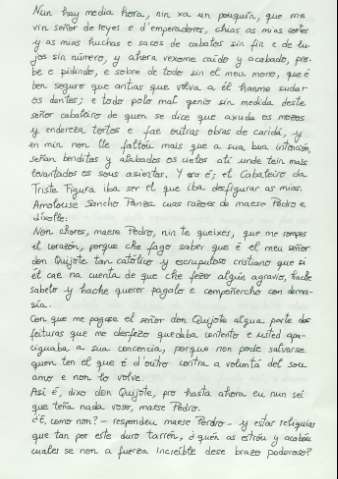 Nun hay media hora, nin xa un pouquiñ, que me
vin señor de reyes e d'emperadores, chias as mias cortes
y as mias huchas e sacos de cabalos sin fin e de lu-
jos sin número, y ahora vexome caído y acabado, pro-
be e pidindo, e sobre de todo sin el meu mono, que é
ben seguro que antias que volva a él hanme sudar
os dentes; e todo polo mal genio sin medida deste
señor cabaleiro de quen se dice que axuda os mozos
y endereza tortos e fae outras obras de caridá, y
en min non lle faltou mais que a sua boa intención,
señan benditos y alabados os cielos ati unde tein mais
levantados os sous asientos. Y eso é; el Cabaleiro da
Triste Figura iba ser el que iba desfigurar as mias.
Amolouse Sancho Panza cuas razois de maese Pedro e
díxolle:
Non chores, maese Pedro, nin te queixes, que me rompes
el corazón, porque che fago saber que é el meu señor
don Quijote tan católico y escrupuloso cristiano que si
él cae na cuenta de que che fezo algún agravio, hache
sabelo y hache querer pagalo e compeñercho con dema-
sía.
Con que me pagase el señor don Quijote algua parte das
feituras que me desfezo quedaba contento e usted apa-
ciguaba a sua concencia, porque non pode salvarse
quen ten el que é d'outro contra a voluntá del sou
amo e non to volve.
Así é, dixo don Quijote, pro hasta ahora eu nun sei
que teña nada voso, maese Pedro.
¿É, como non? - respondeu maese Pedro - y estas reliquias
que tan por este duro tarrén, ¿ quén as estróu y acabóu
cuales se non a fuerza increíble dese brazo poderoso?